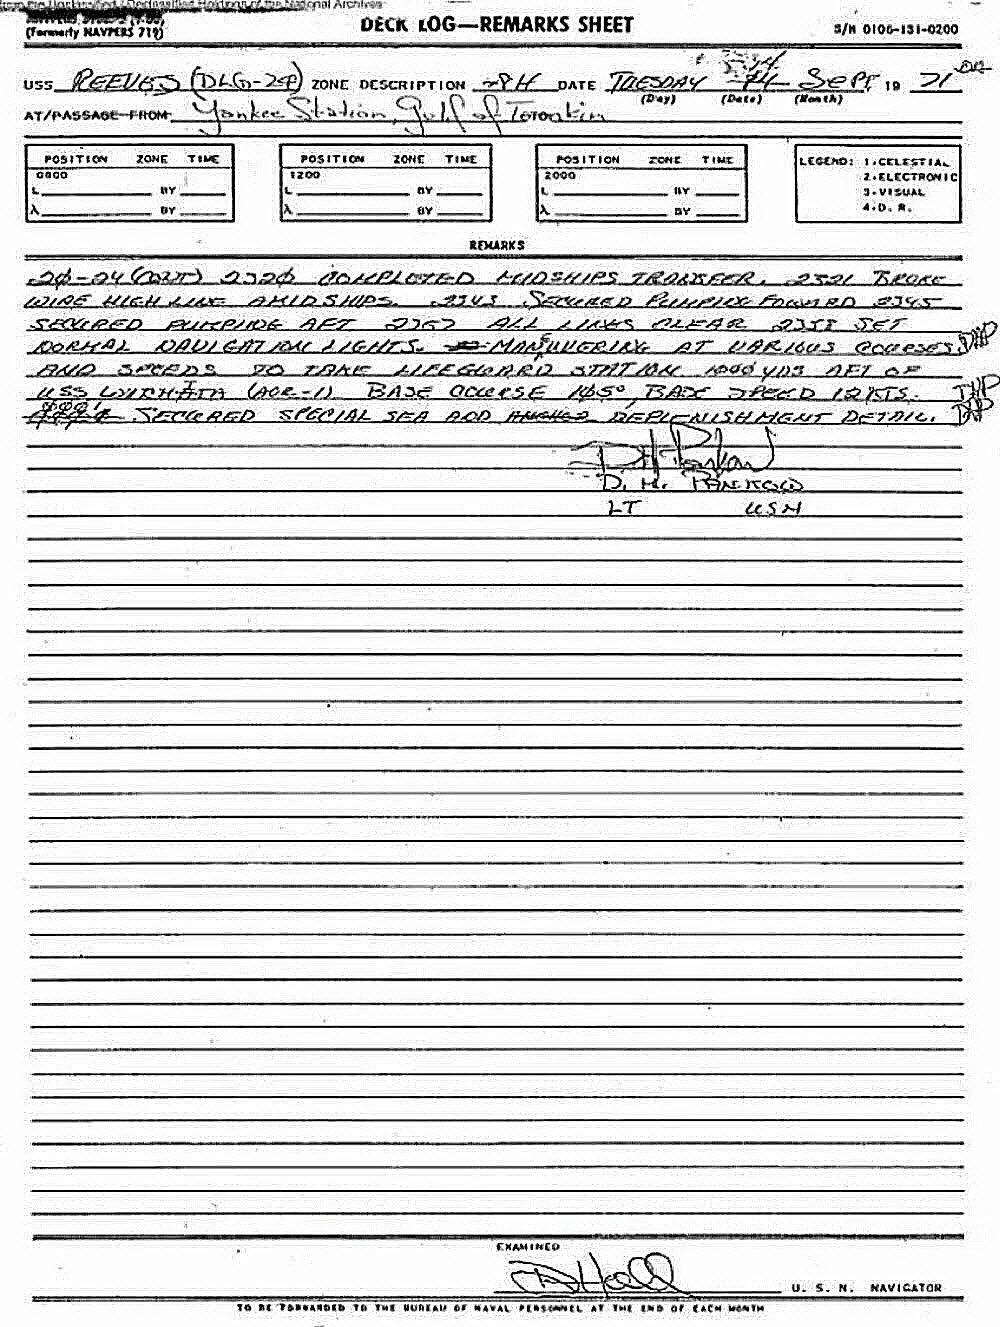 from the Unclassified / Declassified Holdings of the National Archives
(Formerly NAVPERS 719)
DECK LOG—REMARKS SHEET
S/N 0106-131-0200
USS REEVES (DLG-24) ZONE DESCRIPTION -8H DATE TUESDAY 14 SEPT, 19 71
(Day) (Date) (Month)
AT/PASSAGE FROM Yankee Station, Gulf of Tonkin
POSITION ZONE TIME
0800
L BY
λ BY
POSITION ZONE TIME
1200
L BY
λ BY
POSITION ZONE TIME
2000
L BY
λ BY
LEGEND: 1-CELESTIAL
2-ELECTRONIC
3-VISUAL
4-D. R.
REMARKS
20-24 (CONT) 2320 COMPLETED MIDSHIPS TRANSFER. 2321 BROKE
WIRE HIGH LINE AMIDSHIPS. 2343 SECURED PUMPING FORWARD 2345
SECURED PUMPING AFT ALL LINES CLEAR SET
NORMAL NAVIGATION LIGHTS. MANUVERING AT VARIOUS COURSES DHP
AND SPEEDS TO TAKE LIFEGUARD STATION 1000 YDS AFT OF
USS WICHITA (AOR-1) BASE COURSE 165°, BASE SPEED 12 KTS. DHP
SECURED SPECIAL SEA AND REPLENISHMENT DETAIL. DHP
D. H.
LT USN
EXAMINED
U. S. N. NAVIGATOR
TO BE FORWARDED TO THE BUREAU OF NAVAL PERSONNEL AT THE END OF EACH MONTH